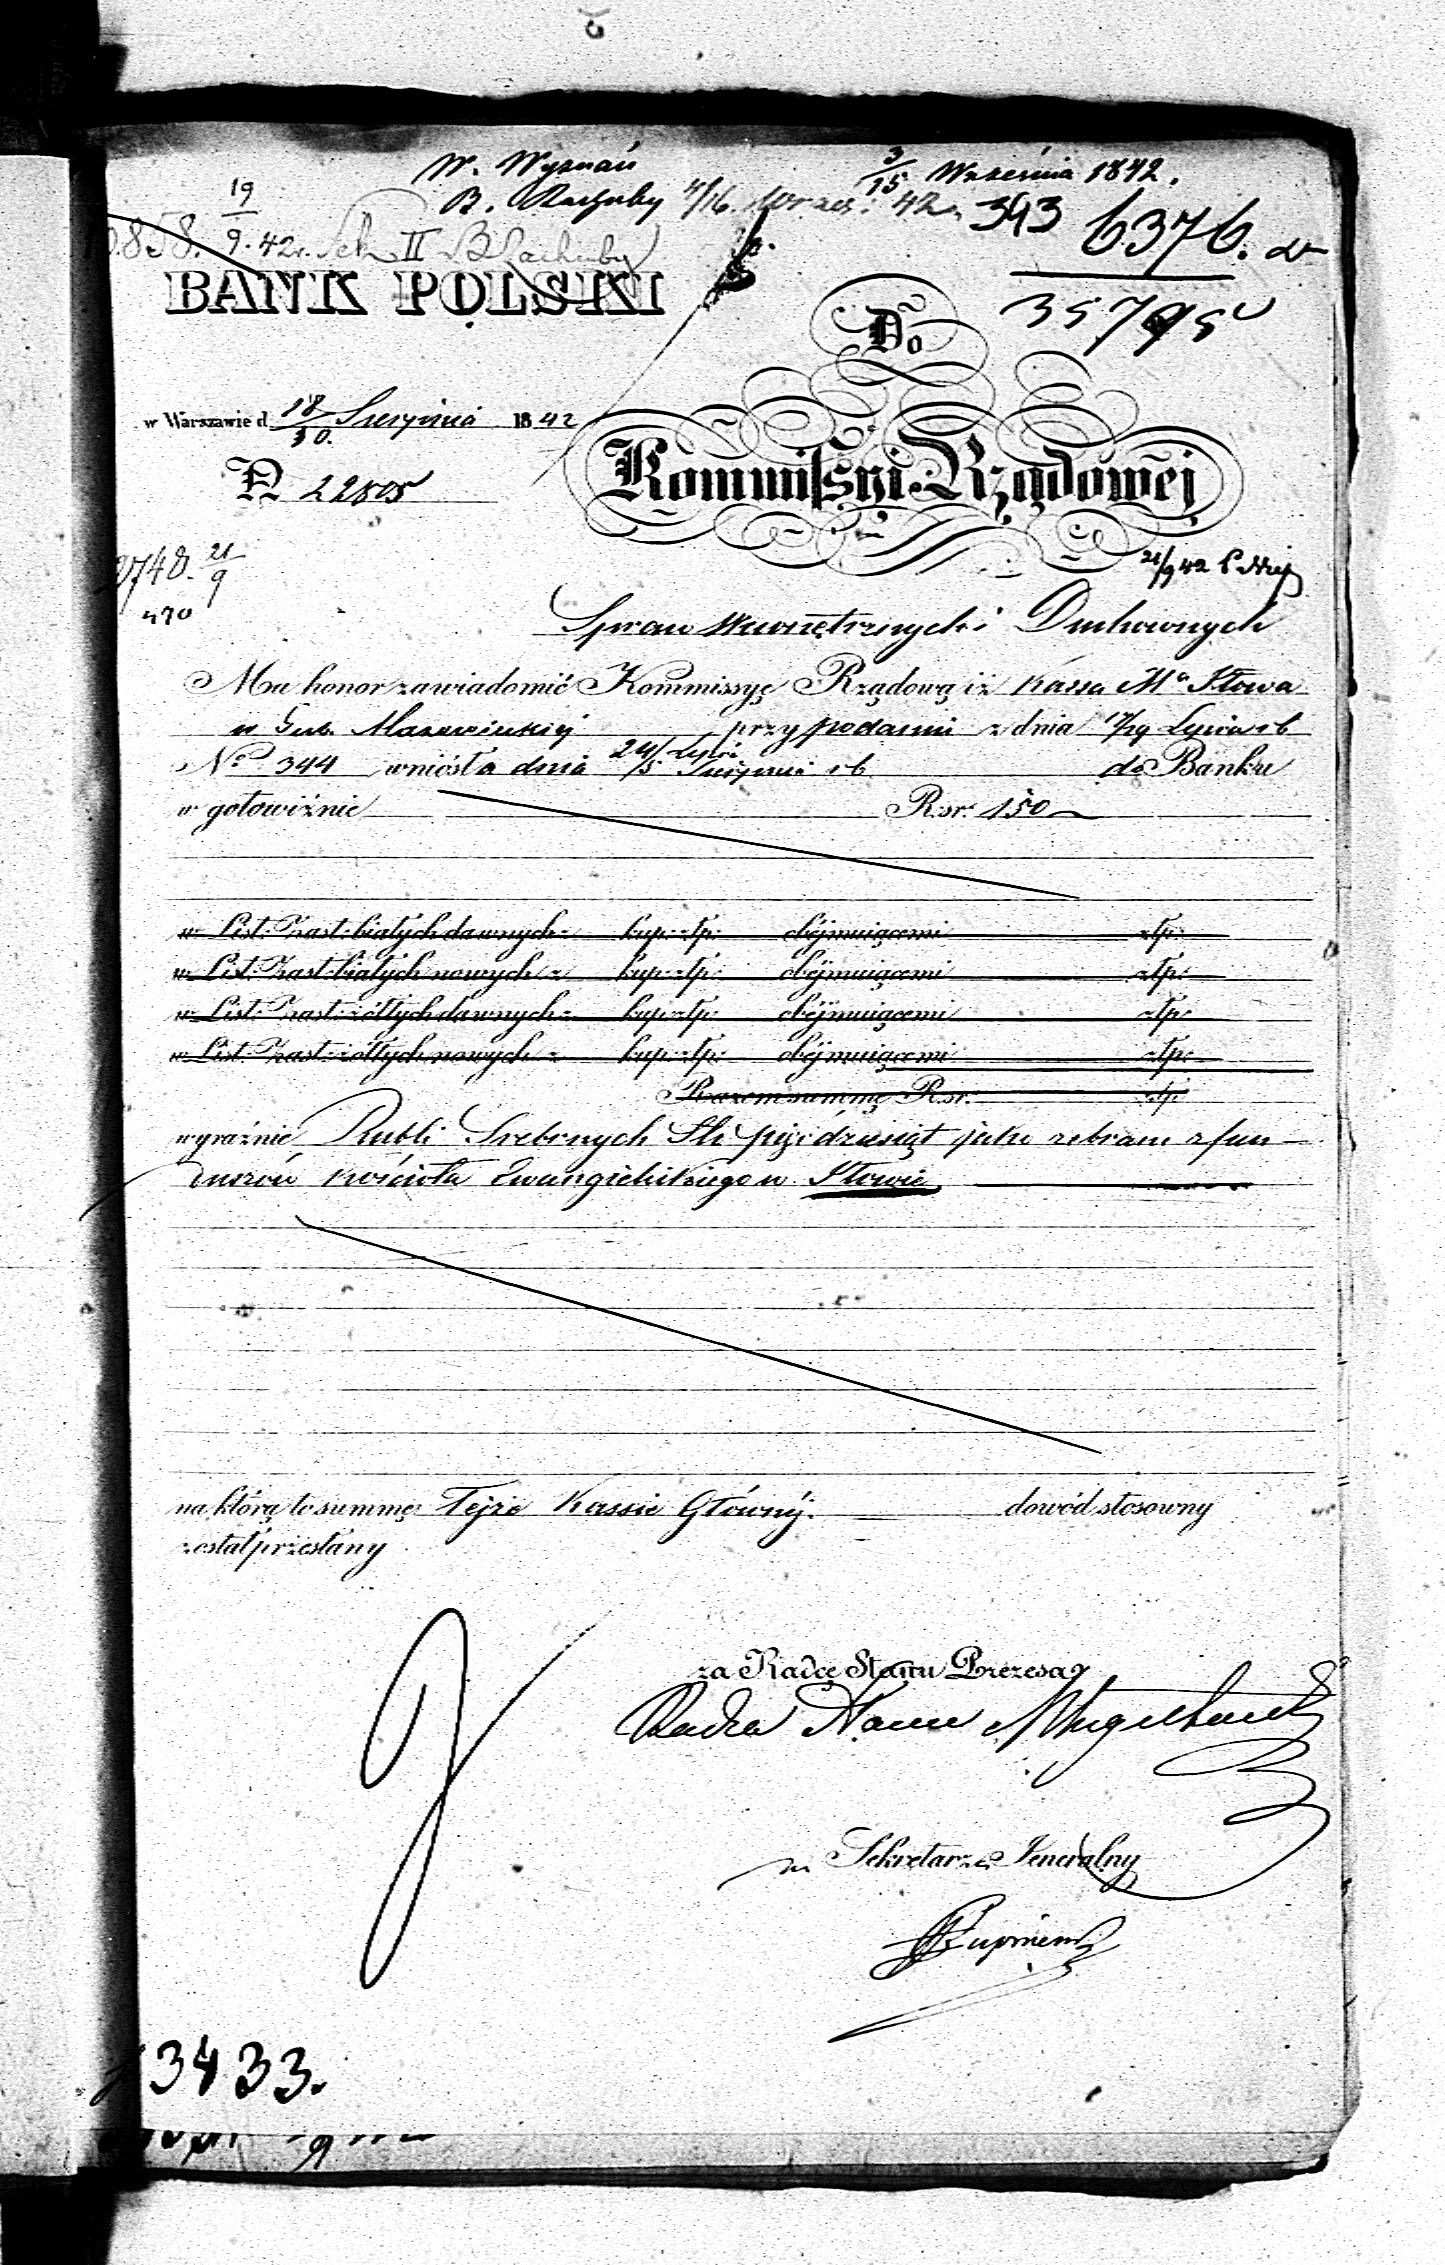 W. Wyznań
3/15 Września 1842.
B. Rachuby 4/16. Wrzes: 42. 343 6376.
19/9. 42. Sek II B Rachuby
35795
BANK POLSKI
Do
w Warszawie d. 18/30. Sierpnia 1842
Kommissyi Rządowej
N 22805
21/9 42
2748. 21/9
470
Spraw Wewnętrznych i Duchownych
Ma honor zawiadomić Kommissyę Rządową iż Kassa Mta Iłowa
w Gub. Mazowieckiej przy podaniu z dnia 17/29 Lipca rb
No 344 wniosła dnia 24/5 Lipca Sierpnia rb do Banku
w gotowiźnie Rsr. 150
w List: Zast: białych dawnych z kup: złp: obejmującemi złp:
w List: Zast: białych nowych z kup: złp: obejmującemi złp:
w List: Zast: żółtych dawnych z kup: złp: obejmującemi złp:
w List: Zast: żółtych nowych z kup: złp: obejmującemi złp:
Razem summę Rsr. złp
wyraźnie Rubli Srebrnych Sto pięćdziesiąt jako zebrane z fun-
duszów kościoła Ewangielickiego w Iłowie
na którą to summę Tejże Kassie Głównej. dowód stosowny
został przesłany
za Radcę Stanu Prezesa
Radca Stanu
Sekretarz Jeneralny
3433.